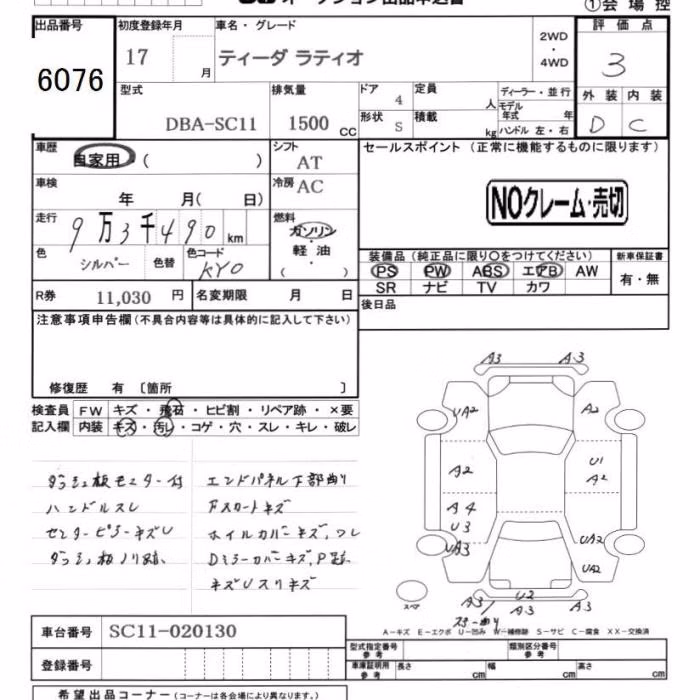 オークション出品申込書
①会場控
出品番号 初度登録年月 車名・グレード 評価点
6076 17 月 ティーダ ラティオ 2WD・4WD 3
型式 排気量 ドア 4 定員 人 ディーラー・並行 外装 内装
DBA-SC11 1500 CC 形状 S 積載 kg モデル年式 年 ハンドル 左・右 D C
車歴 自家用 ( ) シフト AT セールスポイント (正常に機能するものに限ります)
車検 年 月( 日) 冷房 AC NOクレーム・売切
走行 9万3千490km 燃料 ガソリン・軽油・( )
色 シルバー 色替 色コード KY0 装備品 (純正品に限り〇をつけてください) 新車保証書
PS PW ABS エアB AW 有・無
SR ナビ TV カワ
R券 11,030 円 名変期限 月 日 後日品
注意事項申告欄(不具合内容等は具体的に記入して下さい)
修復歴 有 〔箇所 〕
検査員 FW キズ・飛石・ヒビ割・リペア跡・×要
記入欄 内装 キズ・汚レ・コゲ・穴・スレ・キレ・破レ
ダッシュ板モニター付 エンドパネル下部曲り
ハンドルスレ Fスカートキズ
センターピラーキズU ホイルカバーキズ,ワレ
ダッシュ板ノリ跡 Dミラーカバーキズ,P跡
キズUスリキズ
A3 A3
UA2 A2
A2 U1
A2
A4
U3
UA3 UA2
UA2
スペア A3 U2 A3 A3
A-キズ E-エクボ U-凹み W-補修跡 S-サビ C-腐食 XX-交換済
車台番号 SC11-020130
登録番号
型式指定番号 参考 類別区分番号 参考
車庫証明用 参考 長さ cm 幅 cm 高さ cm
希望出品コーナー(コーナーは各会場により異なります。)